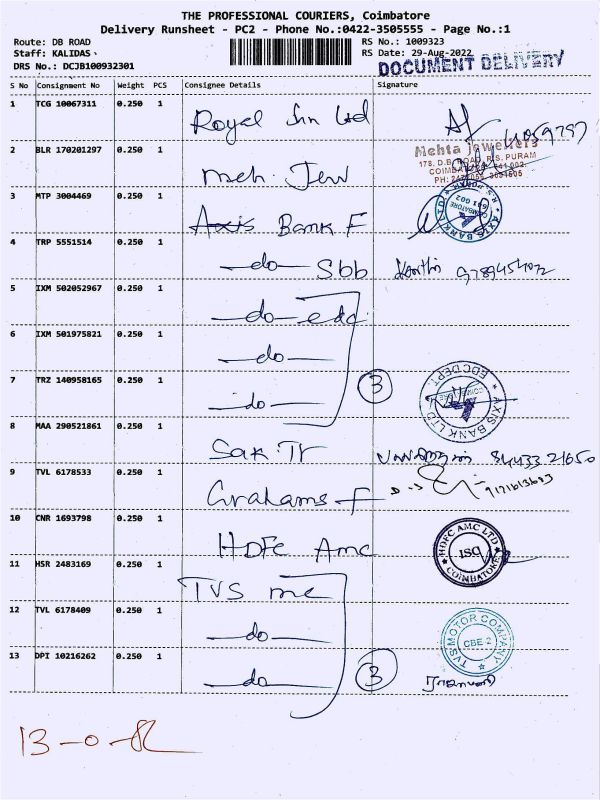 THE PROFESSIONAL COURIERS, Coimbatore
Delivery Runsheet - PC2 - Phone No.:0422-3505555 - Page No.:1
Route: DB ROAD RS No.: 1009323
Staff: KALIDAS- RS Date: 29-Aug-2022
DRS No.: DCJB100932301 DOCUMENT DELIVERY
S No Consignment No Weight PCS Consignee Details Signature
1 TCG 10067311 0.250 1 Royal Sun Ltd
2 BLR 170201297 0.250 1 meh. Jew
Mehta jewellers
178, D.B. ROAD, R.S. PURAM
3 MTP 3004469 0.250 1 Axis Bank F AXIS BANK LTD COIMBATORE
4 TRP 5551514 0.250 1 -do- Sbb
5 IXM 502052967 0.250 1 -do- edc
6 IXM 501975821 0.250 1 -do-
7 TRZ 140958165 0.250 1 -do- 3 AXIS BANK LTD EDC DEPT.
8 MAA 290521861 0.250 1 Sak. Tr 84433 21650
9 TVL 6178533 0.250 1 Grahams F
10 CNR 1693798 0.250 1 HDFC Amc HDFC AMC LTD ISC COIMBATORE
11 HSR 2483169 0.250 1 TVS mc
12 TVL 6178409 0.250 1 -do- TVS MOTOR COMPANY CBE 2
13 DPI 10216262 0.250 1 -do- 3
13-0-